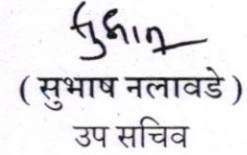 ( सुभाष नलावडे )
उप सचिव